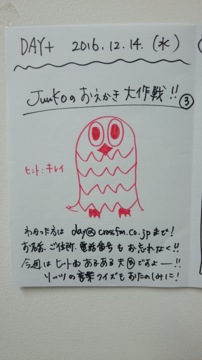 DAY+ 2016.12.14.(水)
Junkoのおえかき大作戦!! ③
ヒント:キレイ
わかった方は day@crossfm.co.jp まで!
お名前、ご住所、電話番号もお忘れなく!!
今週はヒントも あるある
ですよー!!
リーツの言葉クイズもおたのしみに!